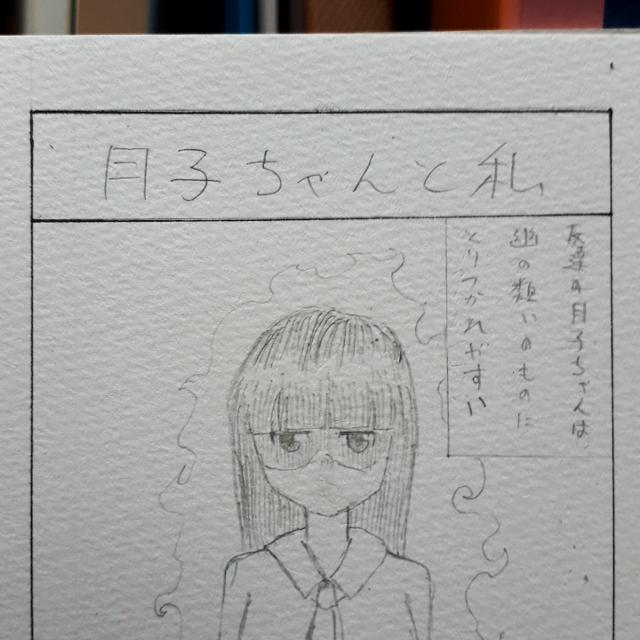 月子ちゃんと私
友達の月子ちゃんは
幽の類いのものに
とりつかれやすい